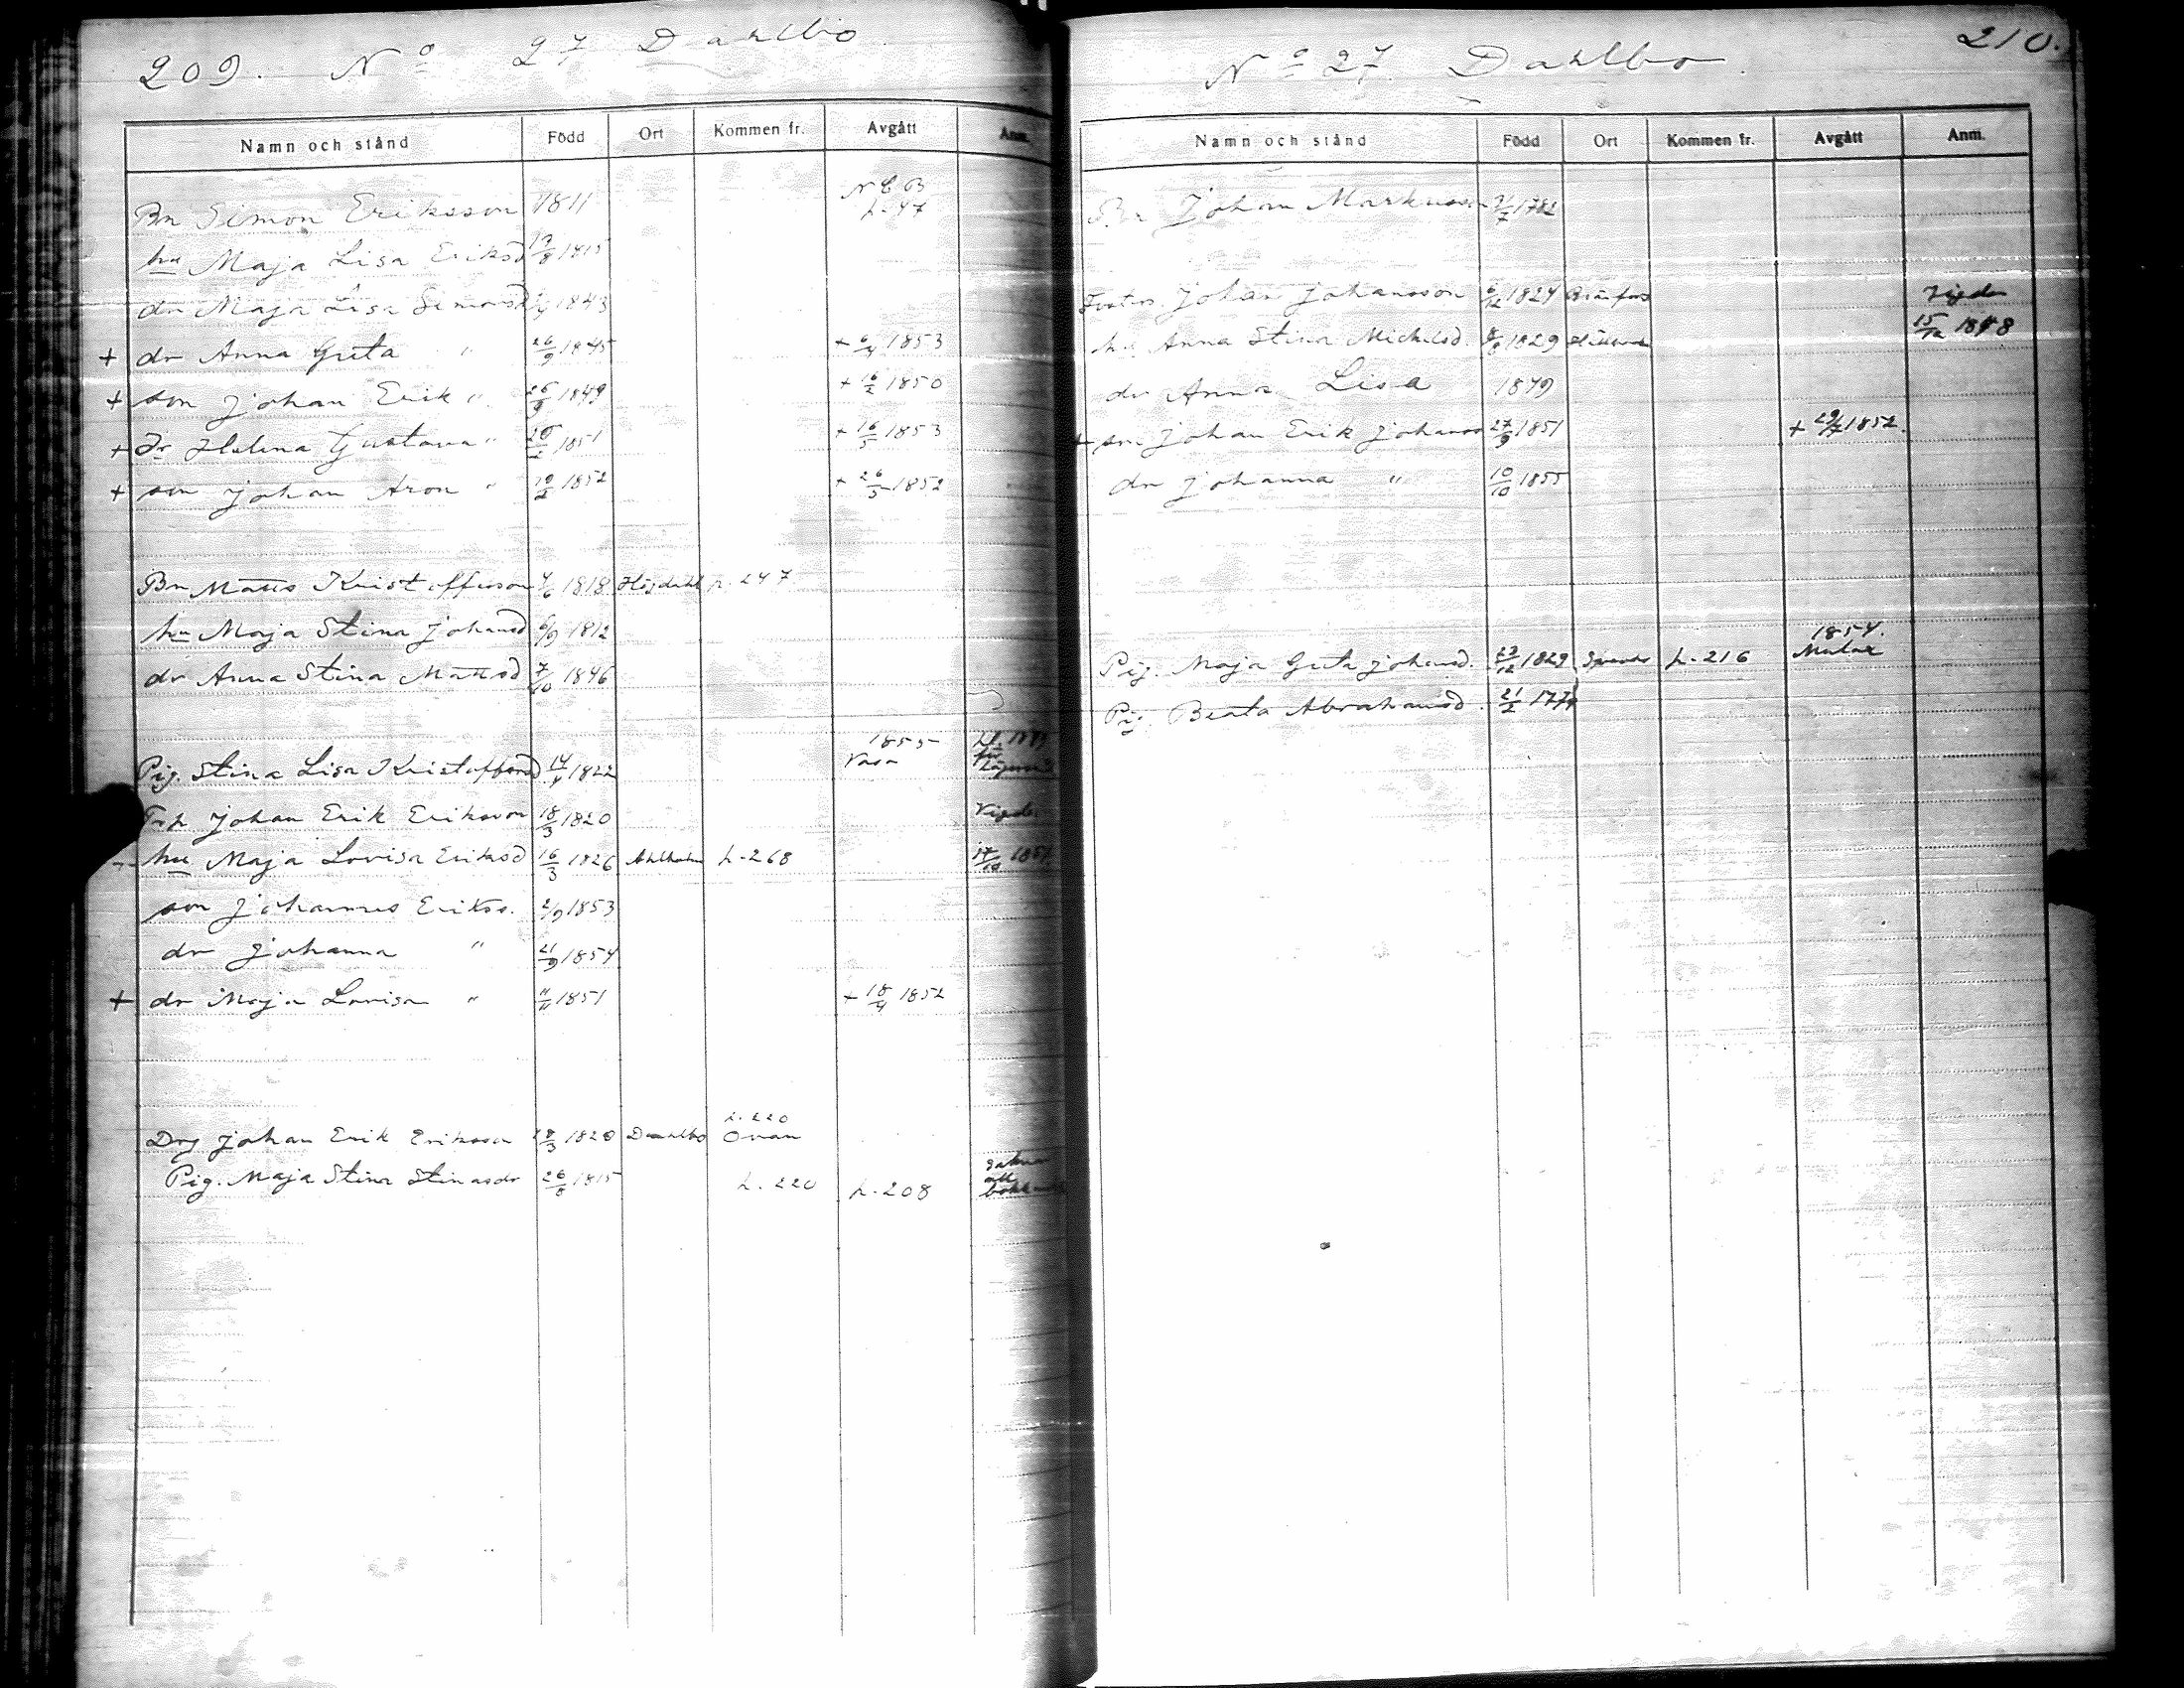 209. No 27 Dahlbo
Namn och stånd Född Ort Kommen fr. Avgått Anm.
Bn Simon Eriksson 1811 N C B L. 47
hu Maja Lisa Eriksd 1815
dr Maja Lisa Simonsd 1843
+ dr Anna Greta " 26/9 1845 + 6/4 1853
+ son Johan Erik " 1849 + 16/2 1850
+ Dr Helena Gustava " 1851 + 16/5 1853
+ son Johan Aron " 1852 + 26/5 1852
Bn Matts Kristoffersson 4/6 1818 Höjdahl L. 247
hu Maja Stina Johansd 6/9 1812
dr Anna Stina Mattsd 7/10 1846
Pig. Stina Lisa Kristoffersd 14/4 1822 1855 Vasa
Johan Erik Eriksson 18/3 1820 Vigde
hu Maja Lovisa Eriksd 16/3 1826 Ahlholm L. 268 17/10 1851
son Johannes Erikss. 2/9 1853
dr Johanna " 21/9 1854
+ dr Maja Lovisa " 11/11 1851 + 18/4 1852
L. 220
Drg Johan Erik Eriksson 18/3 1820 Dahlbo Ovan
Pig. Maja Stina Stinasdr 26/8 1815 L. 220 L. 208
210.
No 27 Dahlbo.
Namn och stånd Född Ort Kommen fr. Avgått Anm.
Bn Johan Markusson 21/7 1782
Johan Johansson 6/12 1824 Vigde
hu Anna Stina Michelsd. 1829 15/12 1848
dr Anna Lisa 1849
+ son Johan Erik Johanss 27/9 1851 + 29/7 1852.
dr Johanna " 10/10 1855
1854.
Pig. Maja Greta Johansd. 23/12 1829 L. 216 Malax
Pig. Beata Abrahamsd. 21/2 1774